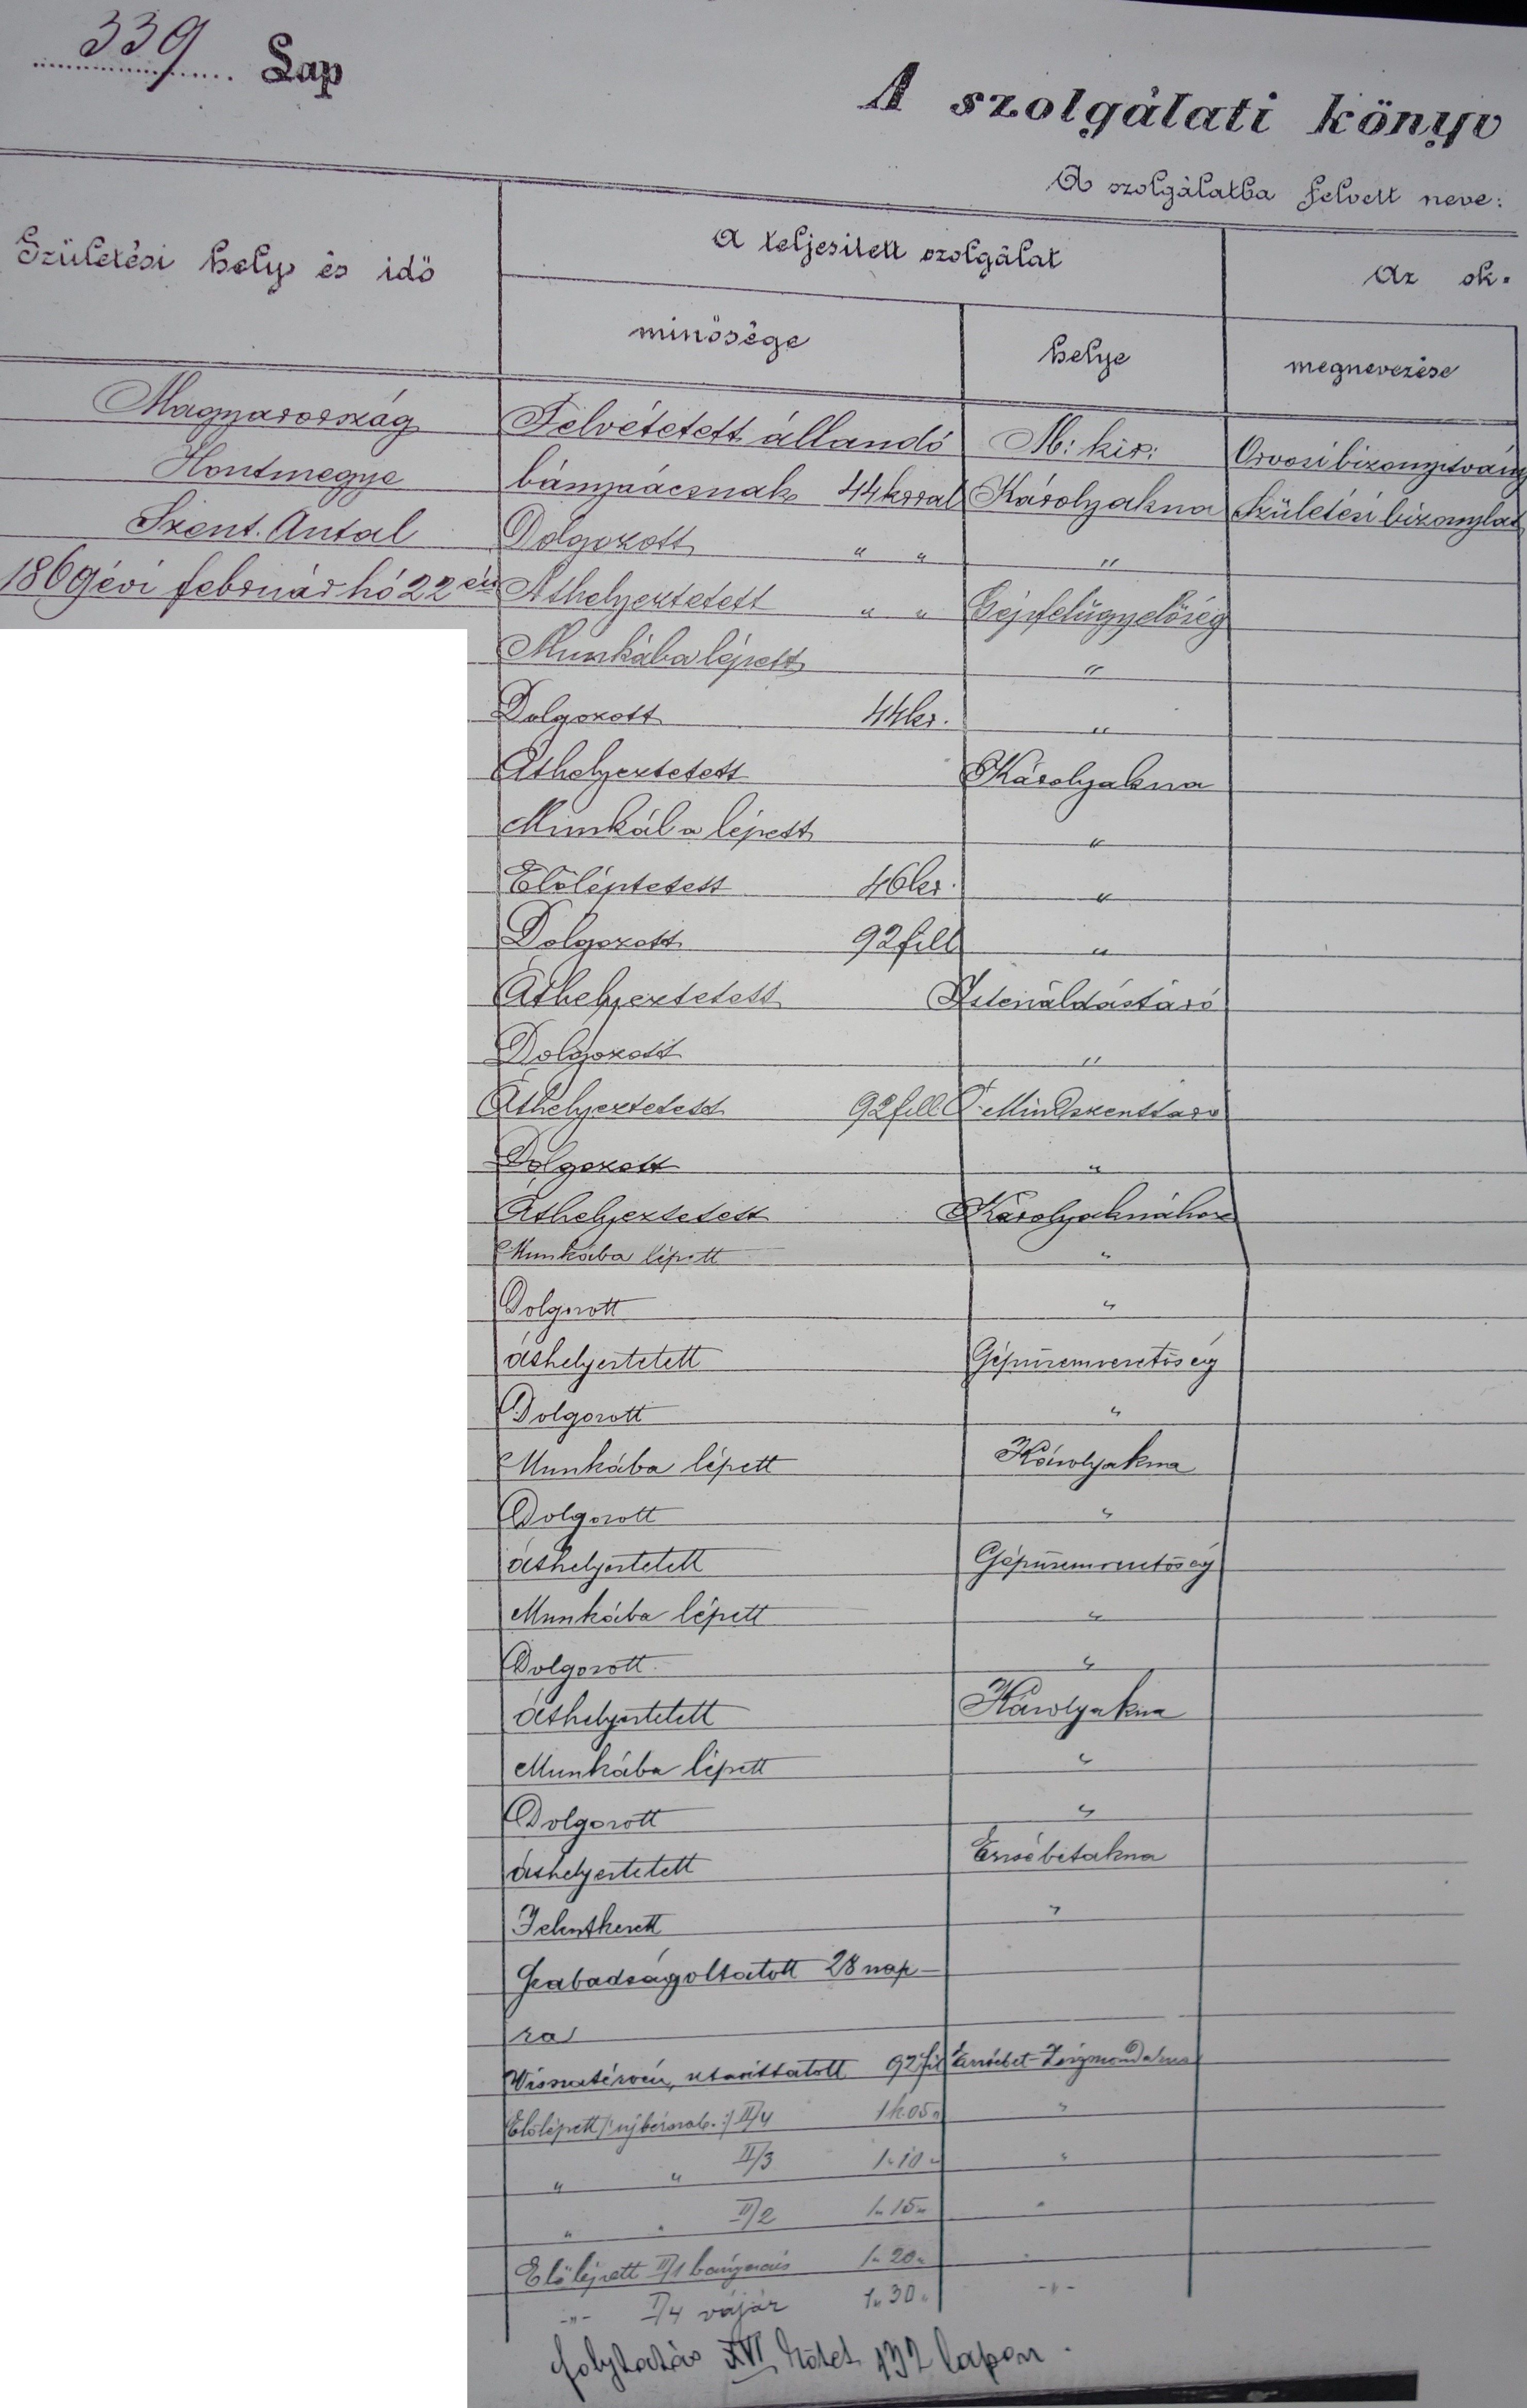 339 Lap
A szolgálati könyv
A szolgálatba felvett neve:
Születési hely és idő
A teljesitett szolgálat
Az ok-
minősége
helye
megnevezése
Magyarország
Felvétetett állandó M: kir: Orvosi bizonyitvány
Hontmegye
bányaácsnak 44 krral Károlyakna Születési bizonylat
Szent. Antal
Dolgozott " " "
1869 évi február hó 22 én
Áthelyeztetett " " Gépfelügyelőség
Munkába lépett "
Dolgozott 44 kr. "
Áthelyeztetett Károlyakna
Munkába lépett "
Előléptetett 46 kr. "
Dolgozott 92 fill "
Áthelyeztetett Istenáldástáró
Dolgozott "
Áthelyeztetett 92 fill Ó-Mindszenttáro
Dolgozott "
Áthelyeztetett Károlyaknához
Munkába lépett "
Dolgozott "
áthelyeztetett Gépüzemvezetőség
Dolgozott "
Munkába lépett Károlyakna
Dolgozott "
áthelyeztetett Gépüzemvezetőség
Munkába lépett "
Dolgozott "
áthelyeztetett Károlyakna
Munkába lépett "
Dolgozott "
áthelyeztetett Erzsébetakna
Jelentkezett "
Szabadságoltatott 28 nap-
ra
Visszatérvén, utasittatott 92 fil Erzsébet-Zsigmondakna
Előlépett /: új bérszab. :/ II/4 1 k 05 " "
" " II/3 1 " 10 " "
" " II/2 1 " 15 " "
Előlépett II/1 bányaács 1 " 20 " "
-"- I/4 vájár 1 " 30 " -"-
folytatás XVI kötet 132 lapon.